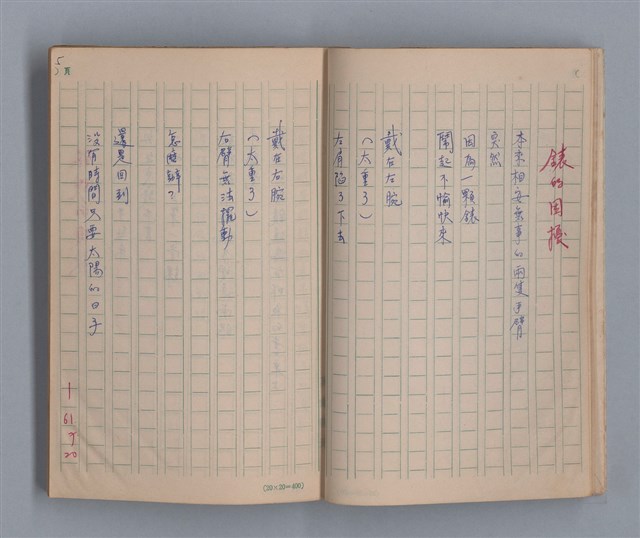 錶的困擾
本來相安無事的兩隻手臂
突然
因為一顆錶
鬧起不愉快來
戴在左腕
（太重了）
左肩陷了下去
戴在右腕
（太重了）
右臂無法擺動
怎麼辦？
還是回到
沒有時間只要太陽的日子
61
9
20
頁
(20×20=400)